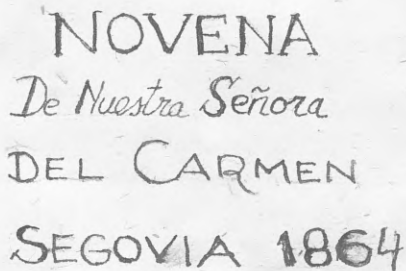 NOVENA
De Nuestra Señora
DEL CARMEN
SEGOVIA 1864